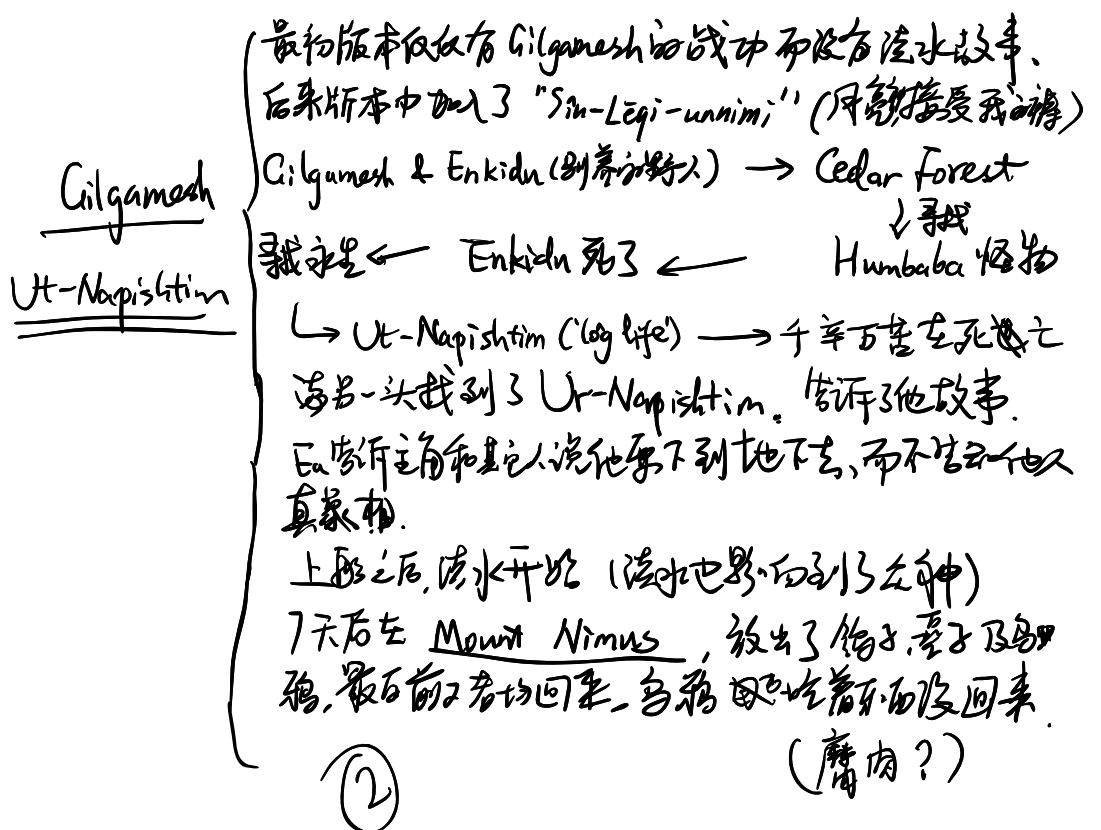 Gilgamesh
Ut-Napishtim
最初版本仅仅有Gilgamesh的战功而没有洪水故事、
后来版本中加入了"Sin-Leqi-unnimi"(月亮接受我的祷)
Gilgamesh & Enkidu(别养的野人) → Cedar Forest
↓寻找
寻找永生 ← Enkidu死了 ← Humbaba怪物
↳ Ut-Napishtim ('log life') → 千辛万苦在死亡
海另一头找到了Ur-Napishtim。告诉了他故事.
Ea告诉主角和其它人说他要下到地下去、而不告示他人
真象相.
上船之后,洪水开始(洪水也影响到了众神)
7天后在 Mount Nimus,放出了鸽子、燕子及乌
鸦,最后前2者均回来,乌鸦吃着东西没回来.
(腐肉?)
②